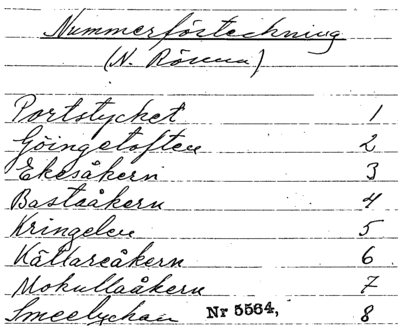 Nummerförteckning
(N. Rörum)
Portstycket 1
Göingetoften 2
Ekesåkern 3
Bastaåkern 4
Kringelen 5
Källareåkern 6
Mokullaåkern 7
Smeelyckan Nr 5564, 8